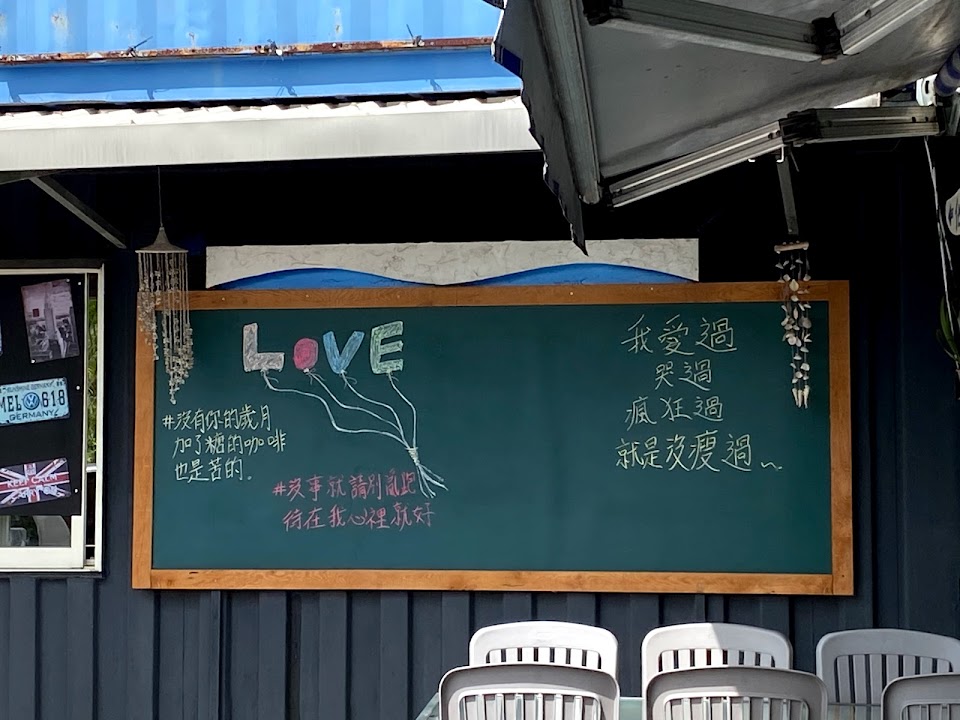 LOVE
#沒有你的歲月
加了糖的咖啡
也是苦的。
#沒事就請別亂跑
待在我心裡就好
我愛過
哭過
瘋狂過
就是沒瘦過~~
MEL 618
GERMANY
KEEP CALM